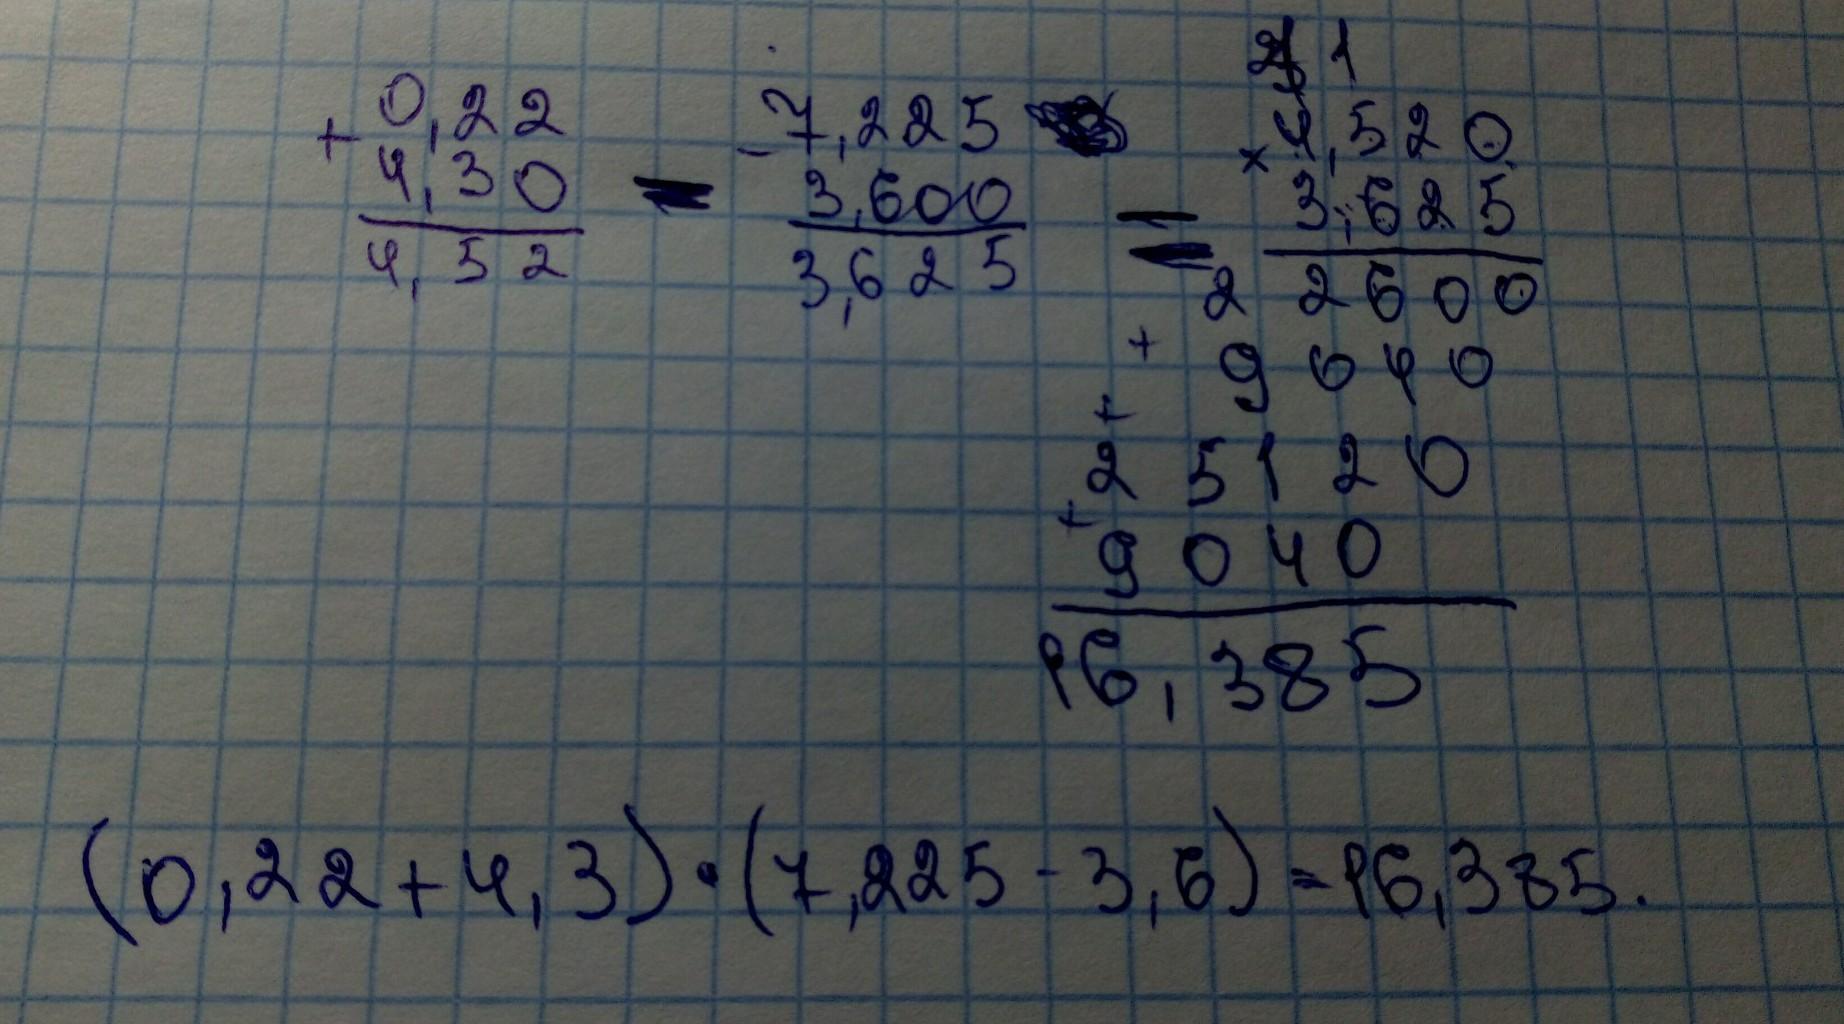 + 0,22
4,30
4,52
=
- 7,225
3,600
3,625
=
2 1
× 4,520
3,625
22600
+ 9040
+ 25120
+ 9040
16,385
(0,22+4,3)·(7,225-3,6)=16,385.